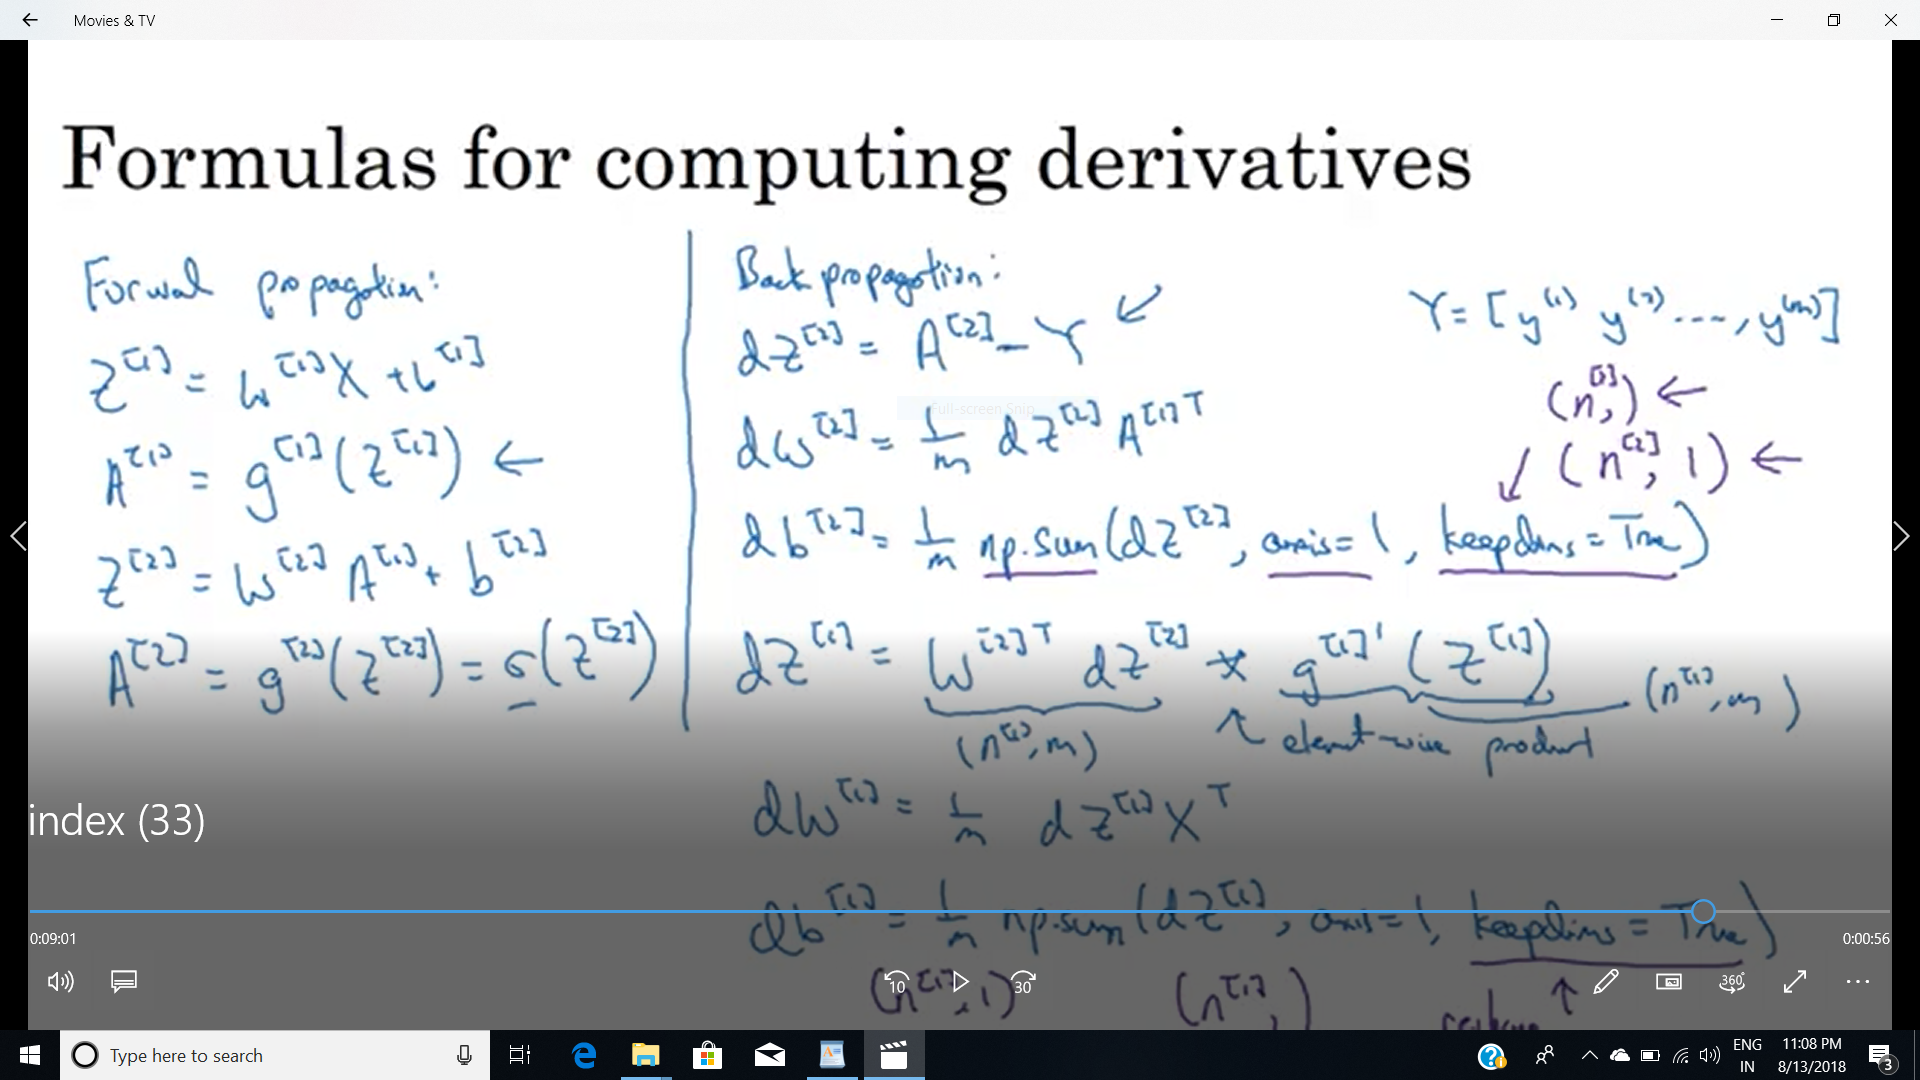 Movies & TV
Formulas for computing derivatives
Forwal propagation:
Z[1] = W[1]X + b[1]
A[1] = g[1](Z[1]) ←
Z[2] = W[2] A[1] + b[2]
A[2] = g[2](Z[2]) = σ(Z[2])
Back propagation:
dZ[2] = A[2] - Y ↙
dW[2] = 1/m dZ[2] A[1]T
db[2] = 1/m np.sum(dZ[2], axis=1, keepdims=True)
dZ[1] = W[2]T dZ[2] * g[1]'(Z[1])
(n[1], m) ↑ element-wise product (n[1], m)
dW[1] = 1/m dZ[1] X T
db[1] = 1/m np.sum(dZ[1], axis=1, keepdims=True)
(n[1], 1) (n[1],) ↑
Y = [y(1) y(2) ...., y(m)]
(n[2],) ←
↓ (n[2], 1) ←
Full-screen Snip
index (33)
0:09:01
0:00:56
10
30
360°
Type here to search
ENG
IN
11:08 PM
8/13/2018
3